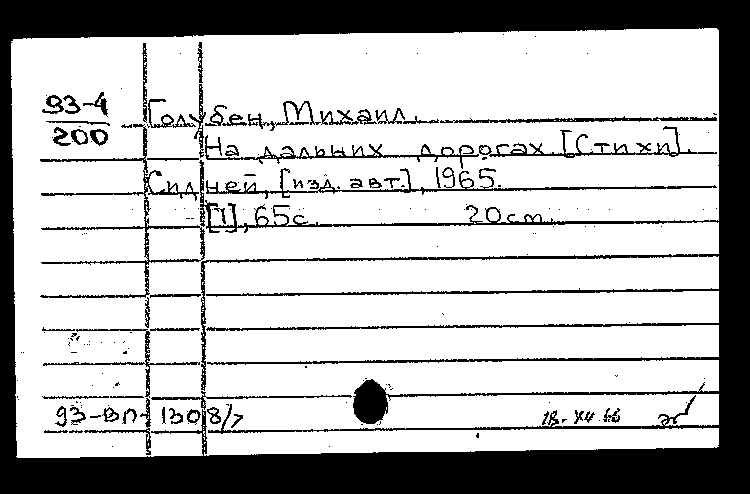 93-4
200
Голубен, Михаил.
На дальних дорогах [Стихи].
Сидней, [изд. авт.], 1965.
[1], 65с. 20см.
93-ВП-1308/7